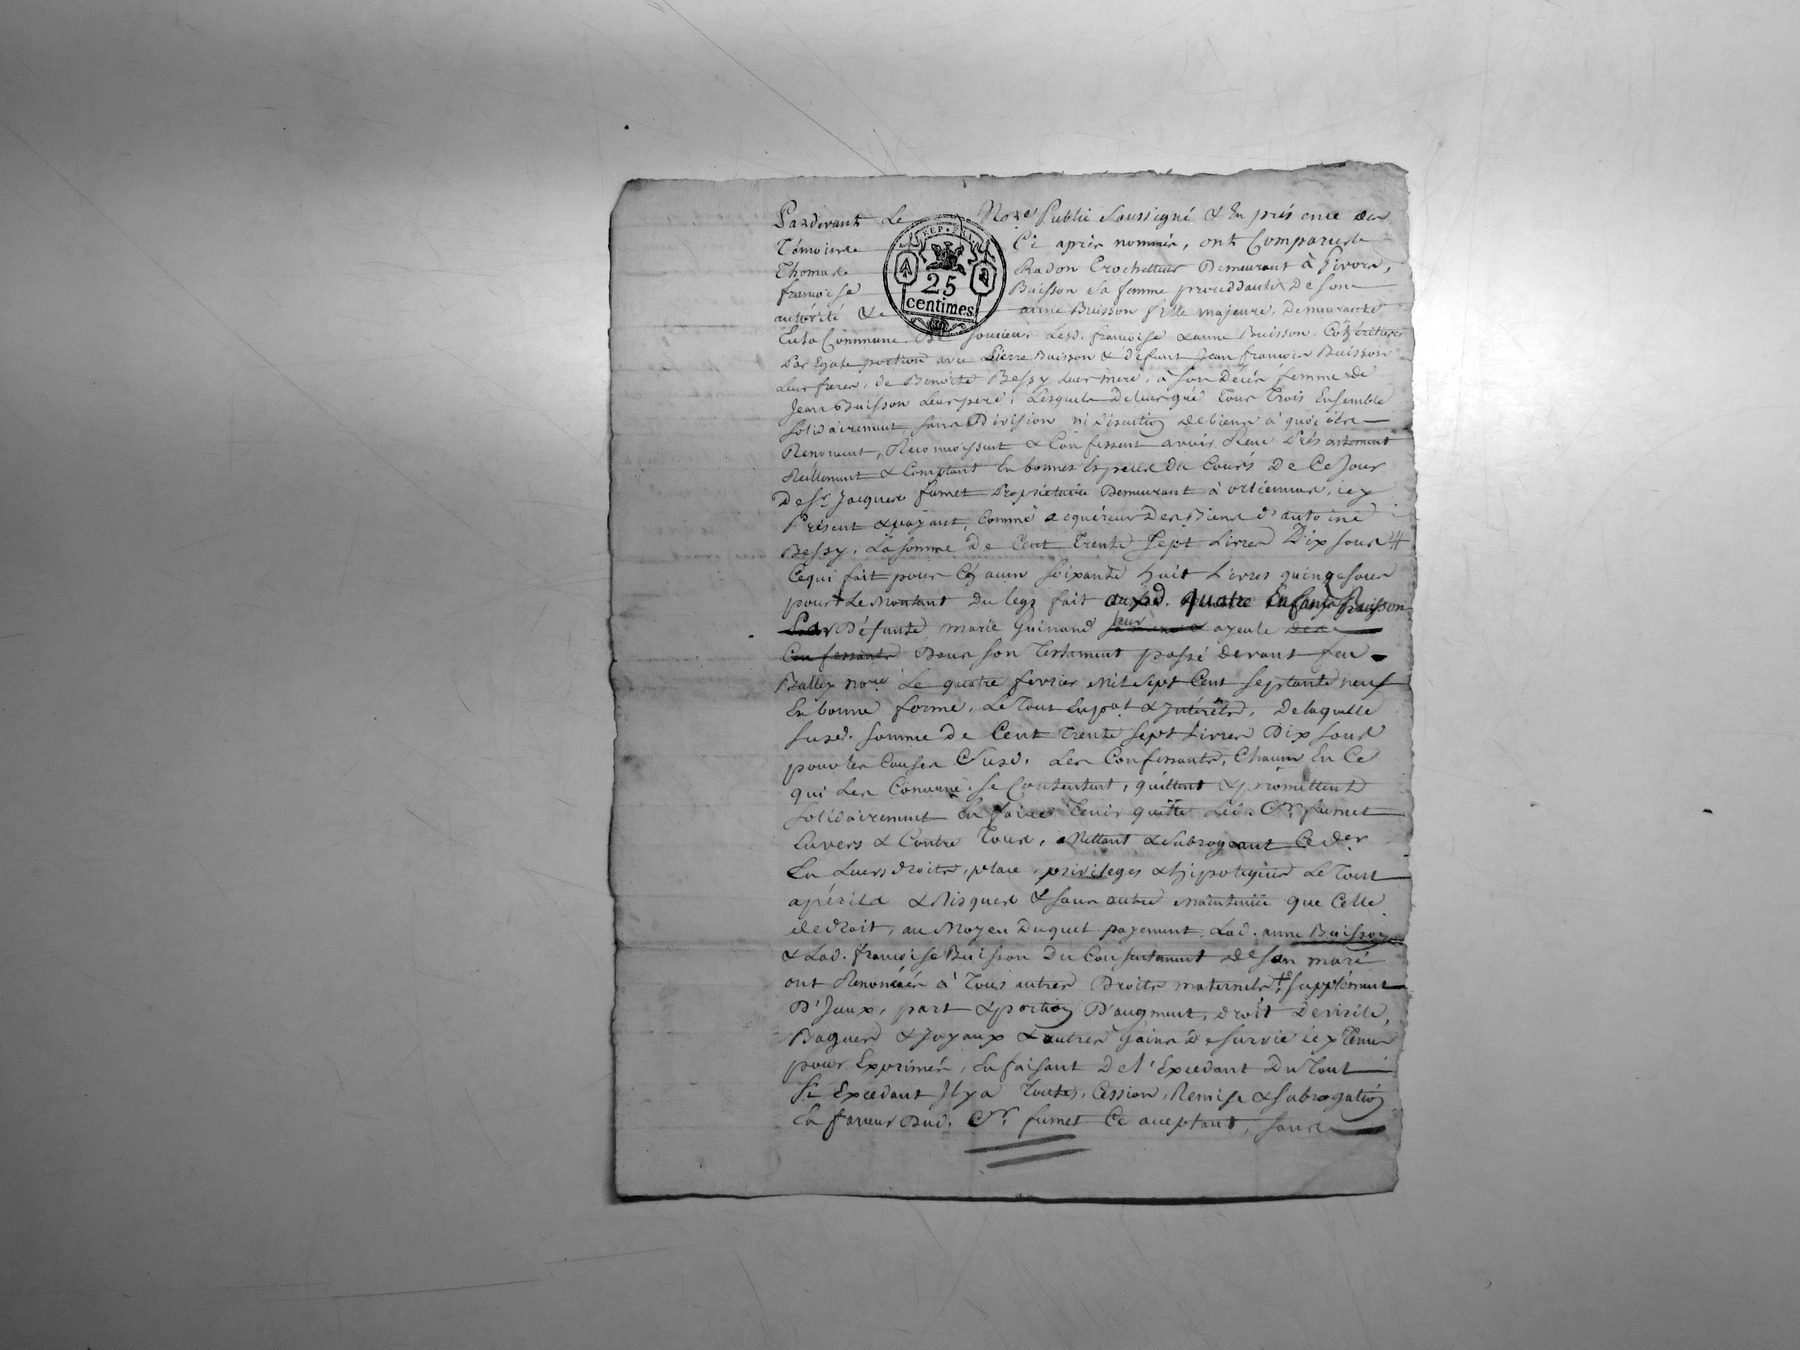 Pardevant Le Nore. Public Soussigné & En présence des
REP. FRA.
25
centimes
Témoins Ci après nommés, ont Comparus
Thomas Radon Crocheteur Demeurant à Givors,
françoise Buisson Sa femme proceddante De Son
autórité & anne Buisson fille majeure, Demeurante
En la Commune De Lesd. françoise & anne Buisson. Cohéritieres
Par Egale portion avec Pierre Buisson & défunt Jean françois Buisson
Leur frere, de Benoite Bessy Leur mere, à Son Décès femme de
Jean Buisson Leur pere, Lesquels De Leur gré Tous Trois Ensemble
Solidairement, Sans Division ni discution de biens à quoi être
Renoncent, Reconnoissent & Confessent avoir Reçu Présentement
Réellement & Comptant En bonnes Espèces Du Cours De Ce Jour
De Sr. Jacques fumet Propriétaire Demeurant à , icy
Présent & payant, Comme acquéreur Des Biens d'antoine
Bessy, La Somme De Cent Trente Sept Livres Dix Sous #
Ce qui fait pour Chacun Soixante huit Livres quinze Sous
pour Le Montant Du legs fait auxd. quatre Enfans Buisson
Par Défunte marie Guinand leur ayeule des
Confessants Dans Son Testament passé devant feu
Ballex nore. Le quatre fevrier Mil Sept Cent Septante neuf
En bonne forme, Le Tout En pal & Intérêts, De laquelle
Susd. Somme De Cent Trente Sept Livres Dix Sous
pour les Causes Susd. Les Confessants, Chacun En Ce
qui Les Concerne, Se Contentent, quittent & promettent
Solidairement En faire Tenir quitte Led. Sr. fumet
Envers & Contre Tous, Mettant & Subrogeant Ce dr.
En Leurs droits, place, privileges & hipoteques Le Tout
à périls & Risques & Sans autre maintenue que Celle
de droit, au Moyen Duquel payement, Lad. anne Buisson
& Lad. françoise Buisson Du Consentement de Son mari
ont Renoncées à Tous autres Droits maternels, Supplément
D'Iceux, part & portion D'augment, droit De virile,
Bagues & Joyaux & autres gains De Survie icy Tenus
pour Exprimés, En faisant De l'Excedant Du Tout
Si Excedant Il y a Toutes, Cession, Remise & Subrogation
En faveur Dud. Sr. fumet Ce acceptant, Sous